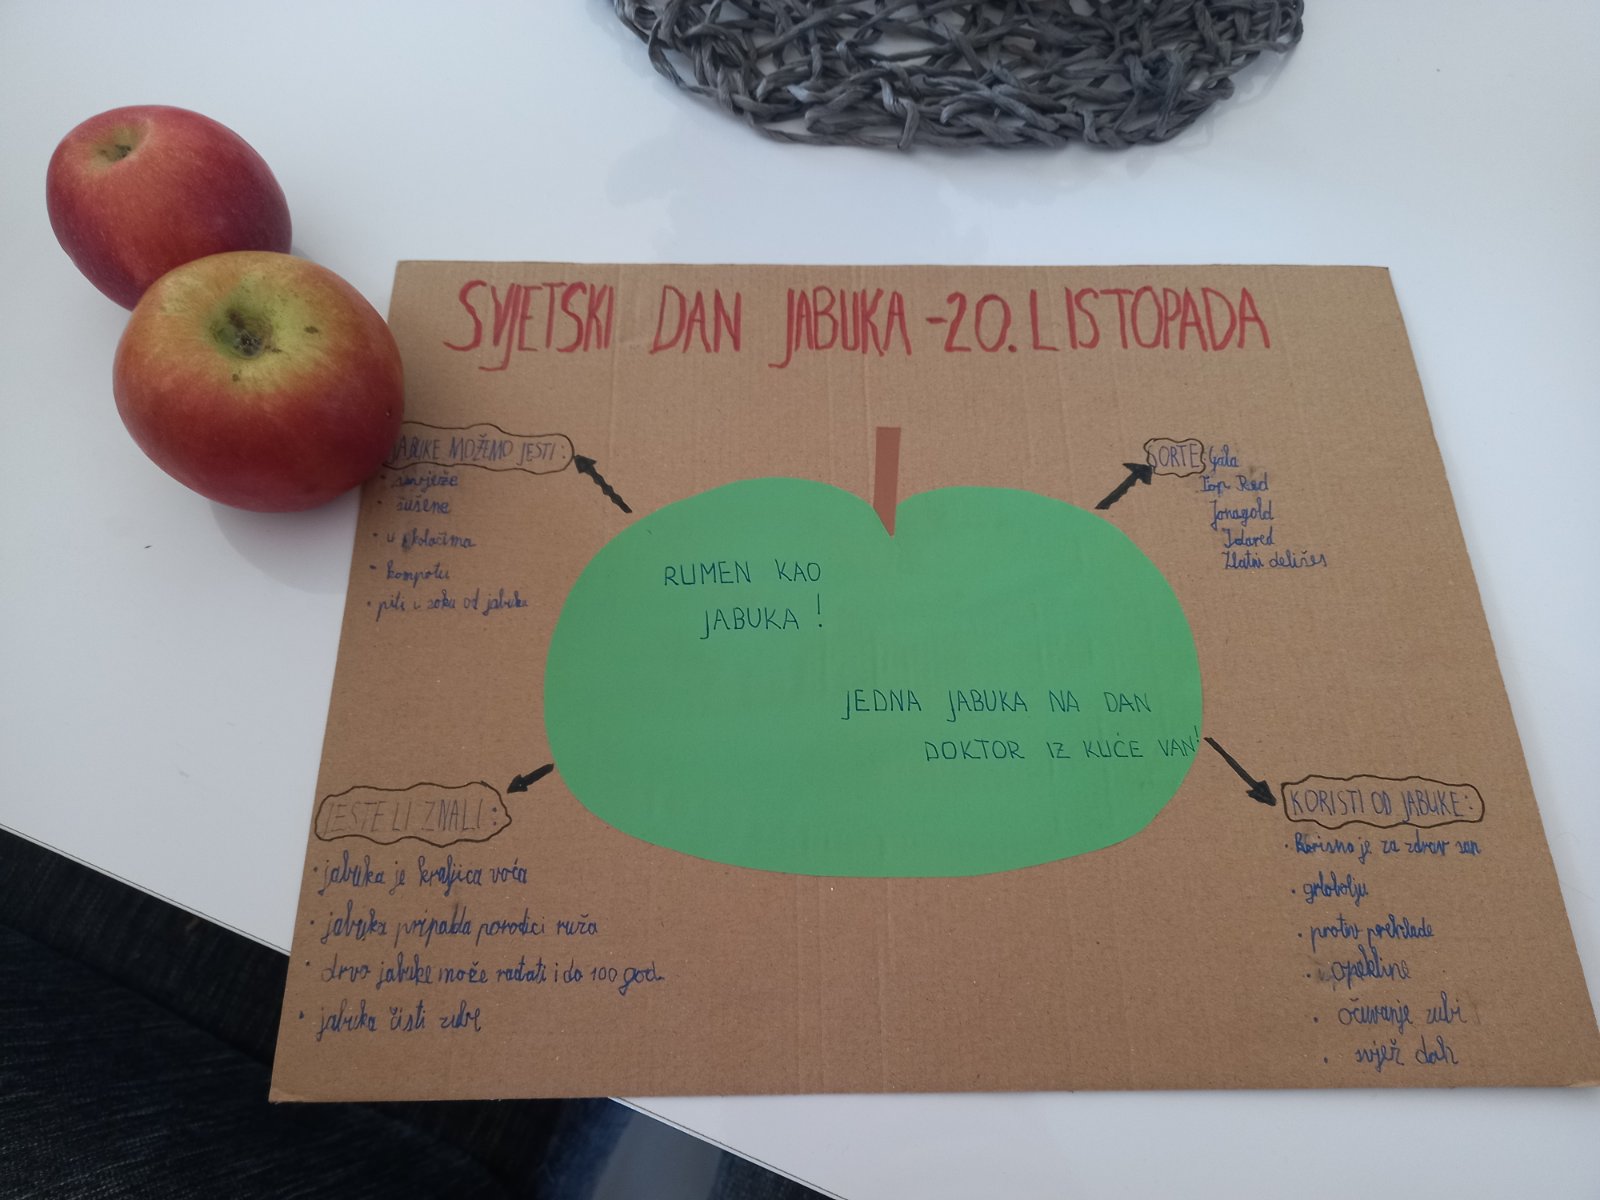 SVJETSKI DAN JABUKA - 20. LISTOPADA
JABUKE MOŽEMO JESTI:
• svježe
• sušene
• u kolačima
• kompotu
• piti u soku od jabuke
SORTE: Gala
Top Red
Jonagold
Idared
Zlatni delišes
RUMEN KAO
JABUKA!
JEDNA JABUKA NA DAN
DOKTOR IZ KUĆE VAN!
JESTE LI ZNALI:
• jabuka je kraljica voća
• jabuka pripada porodici ruža
• drvo jabuke može rađati i do 100 god.
• jabuka čisti zube
KORISTI OD JABUKE:
• Korisno je za zdrav san
• grlobolju
• protiv prehlade
• opekline
• očuvanje zubi
• svjež dah